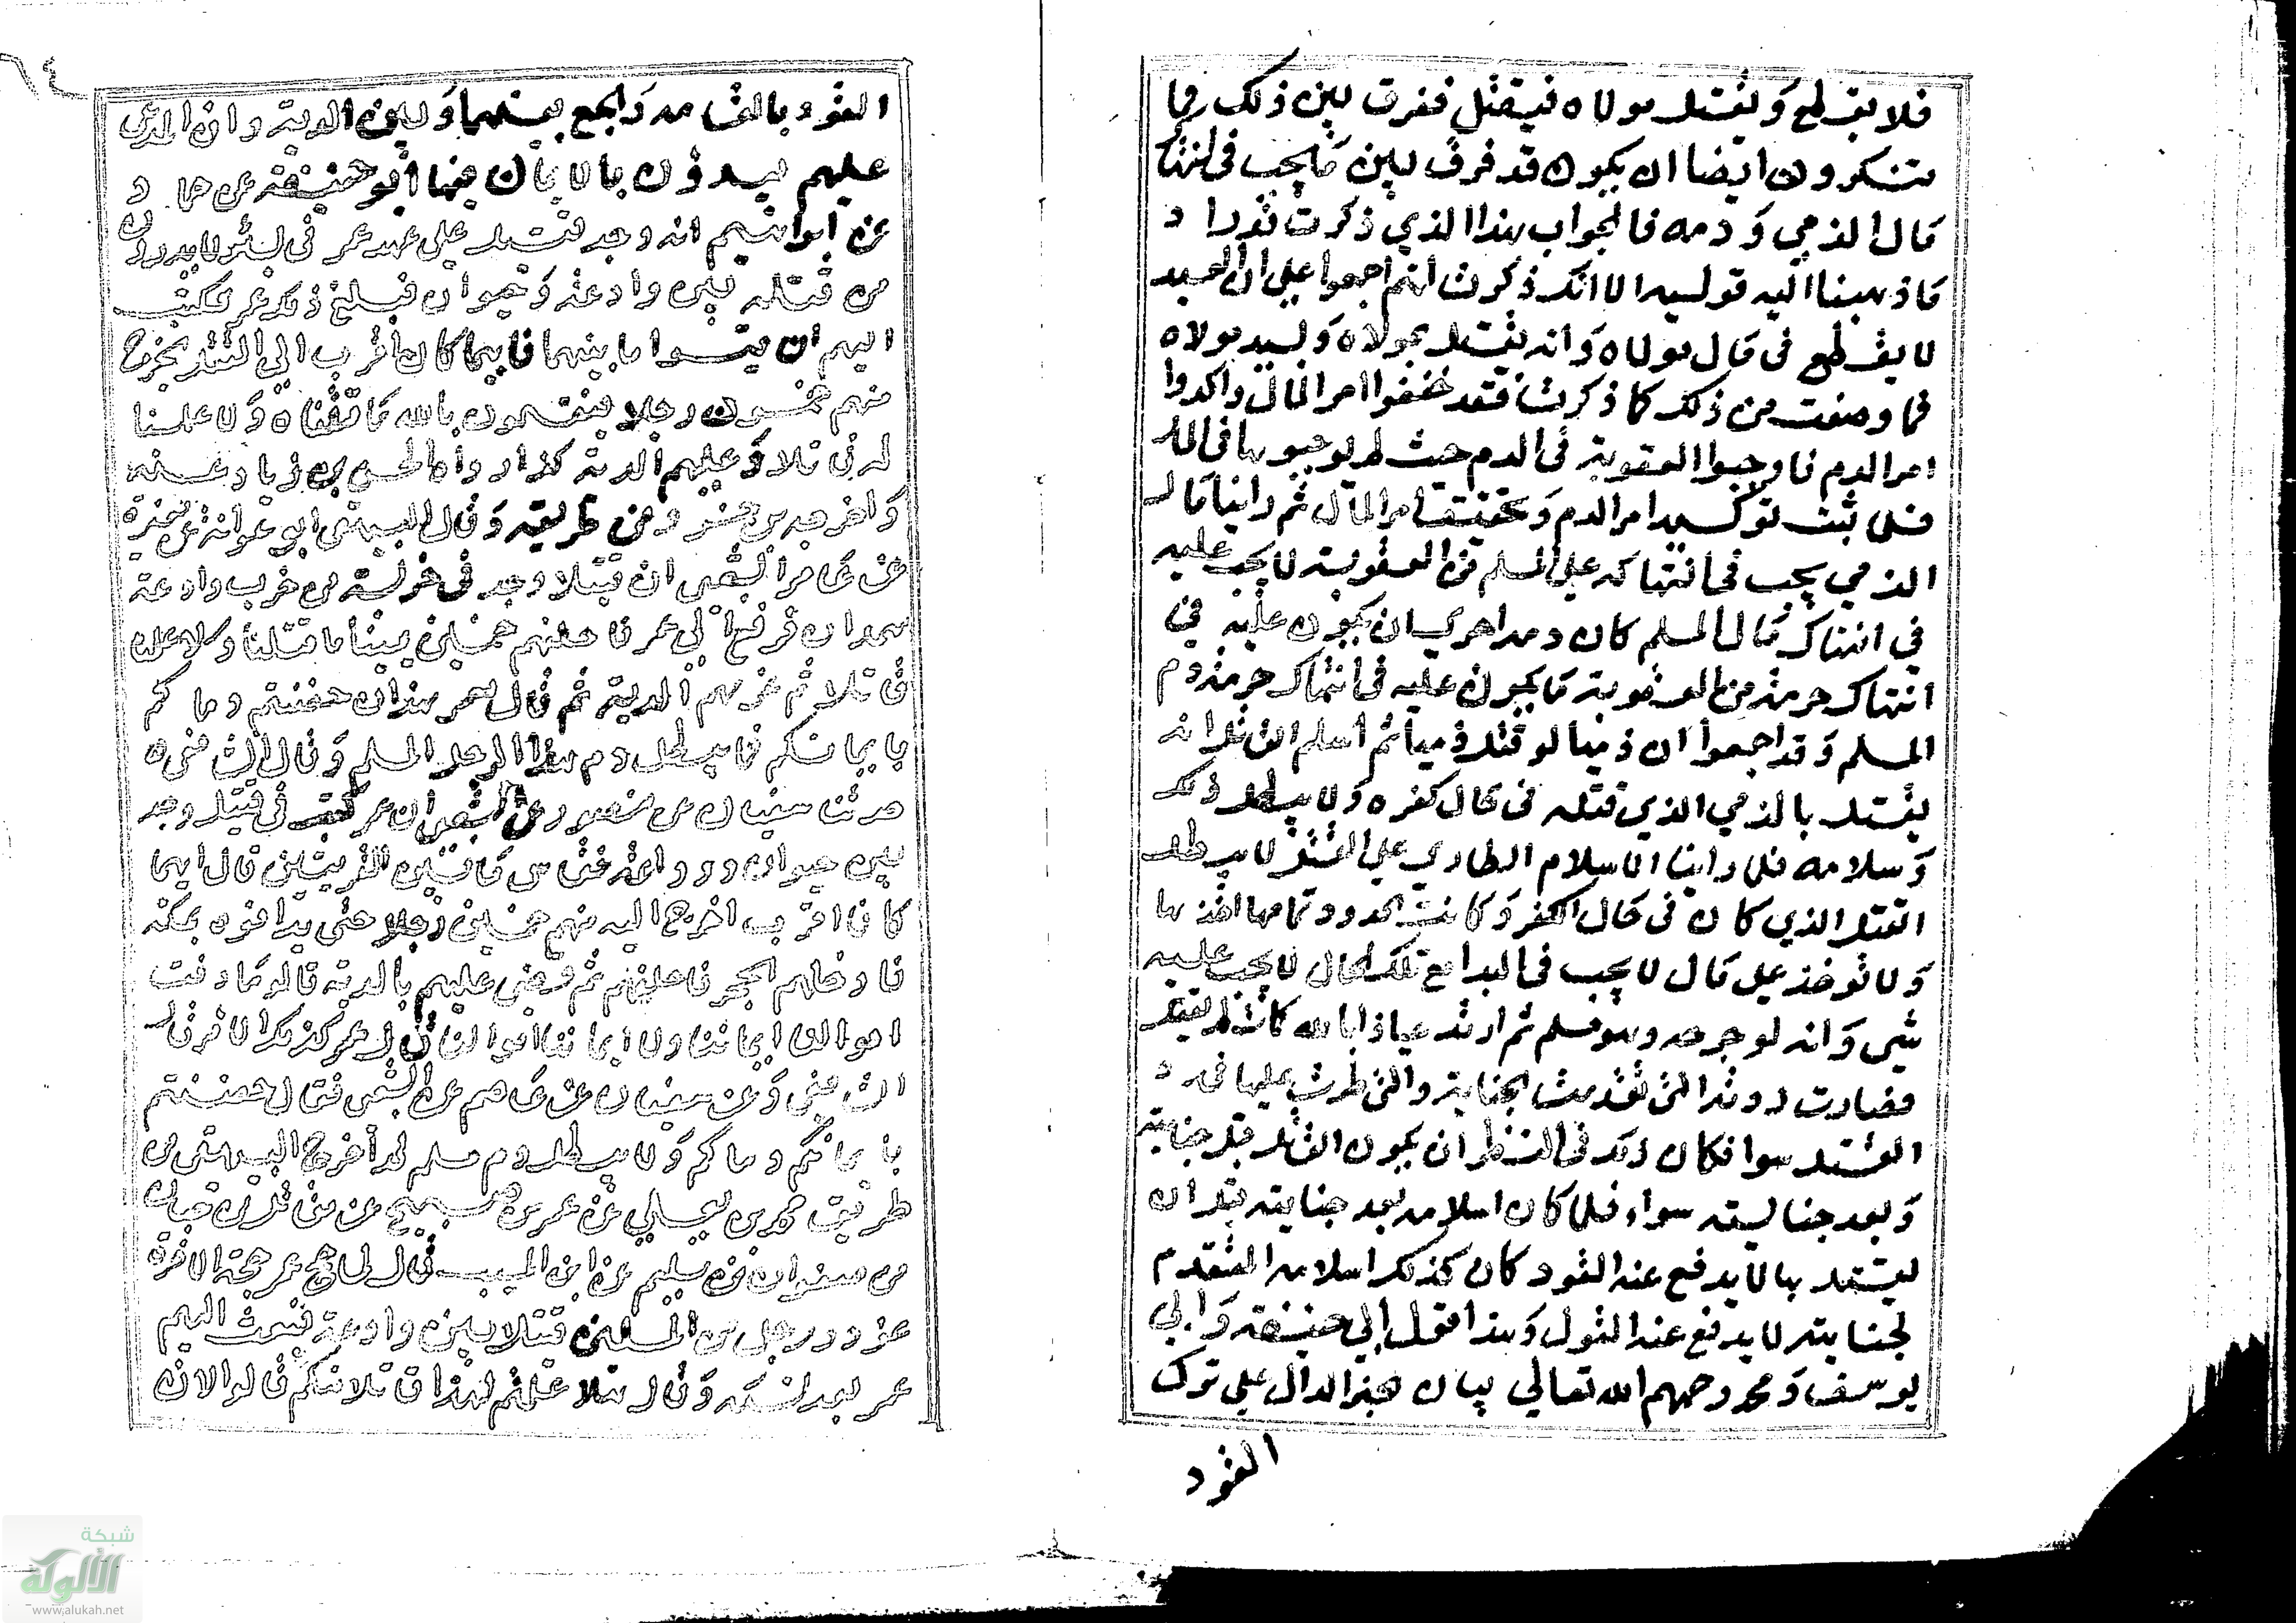 فلا يقطع ويقتل بمولاه فيقتل ففرق بين ذلك فما
تنكرون ايضا ان يكون قد فرق بين ما يجب في انتهاك
مال الذمي ودمه فالجواب هذا الذي ذكرت
ما ذهبنا اليه توكيدا لانك ذكرت انهم اجمعوا على ان العبد
لا يقطع في مال مولاه وانه يقتل بمولاه وبعبد مولاه
فما وصفت من ذلك كما ذكرت فقد خففوا امر المال واكدوا
امر الدم فاوجبوا العقوبة في الدم حيث لم يوجبوها في المال
فلما ثبت توكيد امر الدم وتخفيف امر المال ثم راينا مال
الذمي يجب في انتهاكه على المسلم من العقوبة لا يجب عليه
في انتهاك مال المسلم كان دمه احرى ان يكون عليه في
انتهاك حرمته من العقوبة ما يكون عليه في انتهاك حرمة دم
المسلم وقد اجمعوا ان ذميا لو قتل ذميا ثم اسلم القاتل انه
يقتل بالذمي الذي قتله في حال كفره ولا يبطل ذلك
وسلامه فلما راينا الاسلام الطاري على القتل لا يبطل
القتل الذي كان في حال الكفر وكانت الحدود تمامها اخذها
ولا توخذ على مال لا يجب في البدا مع تلك الحال لا يجب عليه
شي وانه لو جرحه وهو مسلم ثم ارتد عياذا بالله مات لم يقتل
فصارت ردته التي تقدمت الجناية والتي طرت عليها في
القتل سوا فكان ذلك في النظر ان يكون القاتل قبل جنايته
وبعد جنايته سواء فلما كان اسلامه بعد جنايته قبل ان
يقتل بها لا يدفع عنه القود كان كذلك اسلامه المتقدم
لجنايته لا يدفع عنه القول وهذا قول ابي حنيفة وابي
يوسف ومحمد رحمهم الله تعالى بيان خبر الدال على ترك
القود
القود بالقسامة والجمع بينهما وبين الدية وان المدعى
عليهم يبدؤن بالايمان فيها ابو حنيفة عن حماد
عن ابراهيم انه وجد قتيل على عهد عمر في بئر لا يدرون
من قتله بين وادعة وخيوان فبلغ ذلك عمر فكتب
اليهم ان قيسوا ما بينهما فايهما كان اقرب الى القتيل يخرج
منهم خمسون رجلا فيقسمون بالله ما قتلناه ولا علمنا
له قاتلا وعليهم الدية كذا رواه الحسن بن زياد عنه
واخرجه بن خسرو من طريقه وقال البيهقي ابو عوانة عن مغيرة
عن عامر الشعبي ان قتيلا وجد في خربة من خرب وادعة
همدان فرفع الى عمر فاحلفهم خمسين يمينا ما قتلنا ولا علمنا
قاتلا ثم غرمهم الدية ثم قال يا معشر همدان حقنتم دماكم
بايمانكم فما يبطل دم هذا الرجل المسلم وقال الشافعي
حدثنا سفيان عن منصور عن الشعبي ان عمر كتب في قتيل وجد
بين خيوان ووادعة فقاس ما بين القريتين قال ايهما
كان اقرب اخرج اليه منهم خمسين رجلا حتى يوافوه بمكة
فادخلهم الحجر فاحلفهم ثم قضى عليهم بالدية قالوا ما دفعت
اموالنا ايماننا ولا ايماننا اموالنا قال عمر كذلك الامر قال
الشافعي وعن سفيان عن عاصم عن الشعبي فقال حقنتم
بايمانكم دماكم ولا يبطل دم مسلم له اخرج البيهقي من
طريق محمد بن يعلى عن عمر بن صبيح عن مقاتل بن حيان
عن صفوان بن سليم عن ابن المسيب قال لما حج عمر حجة الاخيرة
غودر رجل من المسلمين قتلا بين وادعة فبعث اليهم
عمر بعد نسكه وقال هلا علمتم لهذا قاتلا منكم قالوا لا فان
شبكة
الألوكة
www.alukah.net